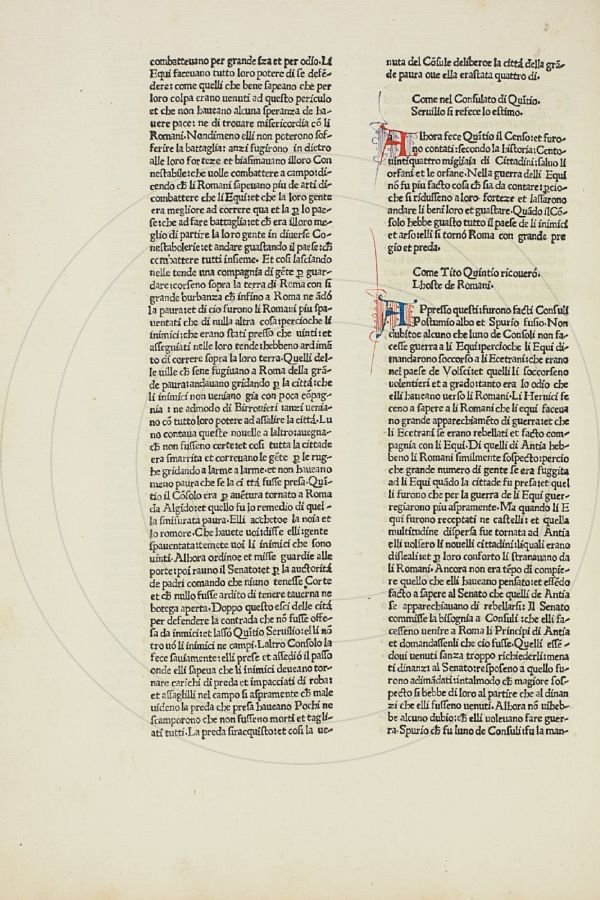 combatteuano per grande fza et per odio. Li
Equi faceuano tutto loro potere di se defē-
dere: come quelli che bene sapeano che per
loro colpa erano uenuti ad questo periculo
et che non haueano alcuna speranza de ha-
uere pace: ne di trouare misericordia cō li
Romani. Nondimeno elli non poterono sof-
ferire la battaglia: anzi fugirono in dietro
alle loro fortezze et biasimauano illoro Con
nestabile: che uolle combattere a campo: di-
cendo cħ li Romani sapeuano piu de arti di
combattere che li Equi: et che la loro gente
era megliore ad correre qua et la ꝑ lo pae-
se: che ad fare battaglia: et cħ era illoro me-
glio di partire la loro gente in diuerse Co-
nestabolerie: et andare guastando il paese: cħ
combattere tutti insieme. Et cosi lasciando
nelle tende una compagnia di gēte ꝑ guar-
dare: corseno sopra la terra di Roma con si
grande burbanza cħ infino a Roma ne ādò
la paura: et di cio furono li Romani piu spa-
uentati che di nulla altra cosa: percioche li
inimici: che erano stati presso che uinti: et
assegniati nelle loro tende: hebbeno ardimā
to di correre sopra la loro terra. Quelli del-
le uille cħ sene fugiuano a Roma della grā-
de paura: andauano gridando ꝑ la città: che
li inimici non ueniano gia con poca cōpag-
nia: ne admodo di Birrouieri: anzi uenia-
no cō tutto loro potere ad assalire la città. Lu
no contaua queste nouelle a laltro: auegna-
cħ non fusseno certe: et cosi tutta la cittade
era smarrita et correuano le gēte ꝑ le rug-
he gridando a larme a larme: et non haueano
meno paura che se la città fusse presa. Quī-
tio il Cōsolo era ꝑ auētura tornato a Roma
da Algido: et quello fu lo remedio di quel-
la smisurata paura. Elli acchetoe la noia et
lo romore. Che hauete uoi: disse elli: gente
spauentata: temete uoi li inimici che sono
uinti. Alhora ordinoe et misse guardie alle
porte: poi rauno il Senato: et ꝑ la auctorità
de padri comando che niuno tenesse Corte
et cħ nullo fusse ardito di tenere tauerna ne
botega aperta. Doppo questo esci delle città
per defendere la contrada che nō fusse offe-
sa da inmici: et lassò Quītio Seruilio: el li nō
tro uò li inimici ne campi. Laltro Consolo la
fece sauiamente: elli prese et assediò il passo
onde elli sapeua che li inimici deueano tor-
nare carichi di preda et impacciati di roba:
et assaglilli nel campo si aspramente cħ male
uideno la preda che presa haueano Pochi ne
scamporono che non fusseno morti et tagli-
ati tutti. La preda si racquisto: et cosi la ue-
nuta del Cōsule deliberoe la città della grā-
de paura oue ella era stata quattro di.
Come nel Consulato di Quītio.
Seruilio si refece lo estimo.
Alhora fece Quītio il Censo: et furo-
no contati: secondo la Historia: Cento-
uintiquattro migliaia di Cittadini: saluo li
orfani et le orfane. Nella guerra delli Equi
nō fu piu facto cosa cħ sia da contare: ꝑcio-
che si ridusseno a loro fortezze et lassarono
andare li beni loro et guastare. Quādo il Cō-
solo hebbe guasto tutto il paese de li inimici
et arso: elli si tornó Roma con grande pre
gio et preda.
Come Tito Quintio ricouerò.
Lhoste de Romani.
Appresso questi: furono facti Consuli
Postumio albo et Spurio fusio. Non
dubitoe alcuno che luno de Consoli non fa-
cesse guerra a li Equi: percioche li Equi di-
mandarono soccorso a li Ecetrani: che erano
nel paese de Volsci: et quelli li soccorseno
uolentieri et a grado: tanto era lo odio che
elli haueano uerso li Romani. Li Hernici fe
ceno a sapere a li Romani che li equi faceua
no grande apparechiamēto di guerra: et che
li Ecetrani se erano rebellati et facto com-
pagnia con li Equi. Di quelli di Antia heb-
beno li Romani similmente sospecto: percio
che grande numero di gente se era fuggita
ad li Equi quādo la cittade fu presa: et quel
li furono che per la guerra de li Equi guer-
regiarono piu aspramente. Ma quando li E
qui furono receptati ne castelli: et quella
multitudine dispersa fue tornata ad Antia
elli uolsero li nouelli cittadini: liquali erano
disleali: et ꝑ loro conforto li stranauano da
li Romani. Ancora non era tēpo di compie-
re quello che elli haueano pensato: et essēdo
facto a sapere al Senato che quelli de Antia
se apparechiauano di rebellarsi: Il Senato
commisse la bisognia a Consuli: che elli fa-
cesseno uenire a Roma li Principi di Antia
et domandassenli che cio fusse. Quelli esse-
doui uenuti sanza troppo richiederli: mena
ti dinanzi al Senato: resposeno a quello fu-
rono adimādati: intalmodo cħ magiore sos-
pecto si bebbe di loro al partire che al dinan
zi che elli fusseno uenuti. Alhora nō uiheb-
be alcuno dubio: cħ elli uoleuano fare guer-
ra. Spurio cħ fu luno de Consuli: fu la man-